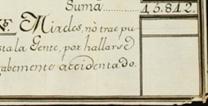 Suma 45.842.
Mixcles, no trae pu-
sta la Gente, por hallarse
gabemente accidentado.